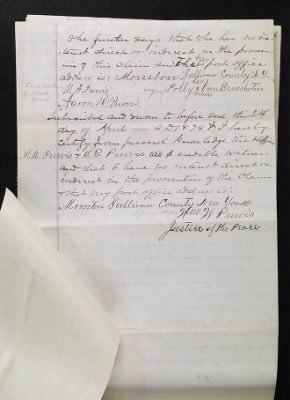 She further says that She has no in-
terest direct or indirect in the prosecu-
tion of this claim and that post office
address is: Morriston Sullivan County N.Y.
her
Polly X Van Benschoten
mark
Aaron W Purvis
Subscribed and sworn to before me this 24
day of April A D 1874 & I hereby
certify from personal knowledge that
M.A. Purvis & A. Purvis are credible witnesses
and that I have no interest direct or
indirect in the prosecution of the Claim
& that my post office address is:
Morriston Sullivan County New York
Wm W Purvis
Justice of the Peace